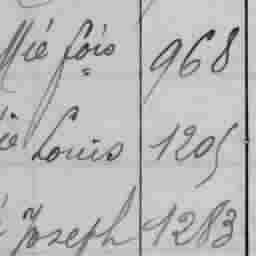 Mié fois 968
Louis 1205
Joseph 1283